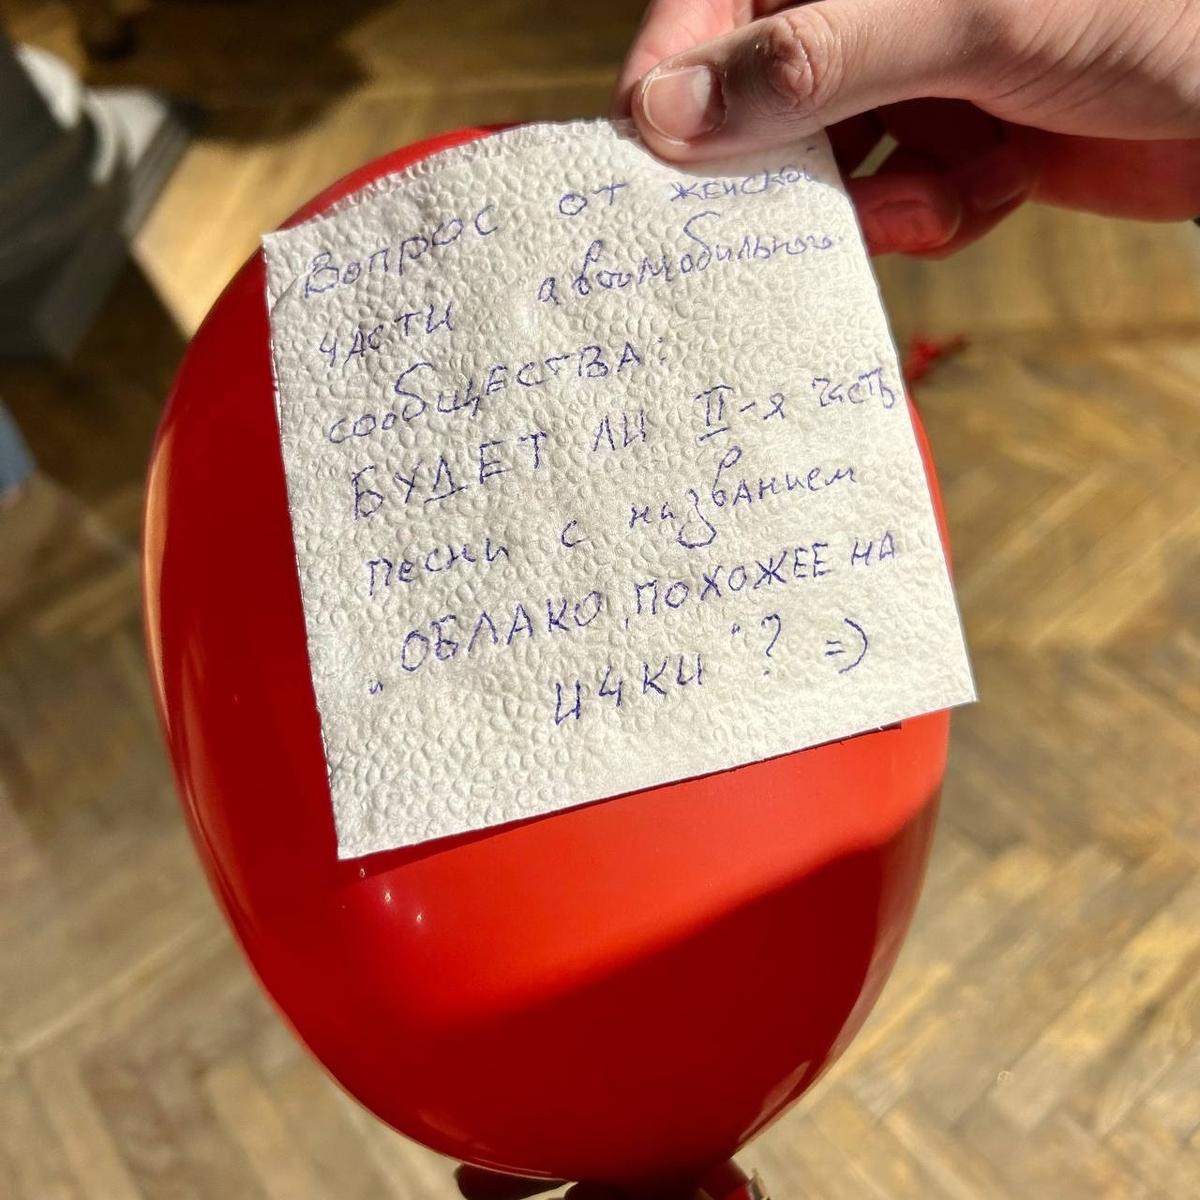 Вопрос от женской
части автомобильного
сообщества:
БУДЕТ ЛИ II-я часть
песни с названием
„ОБЛАКО, ПОХОЖЕЕ НА
ИЧКИ"? =)